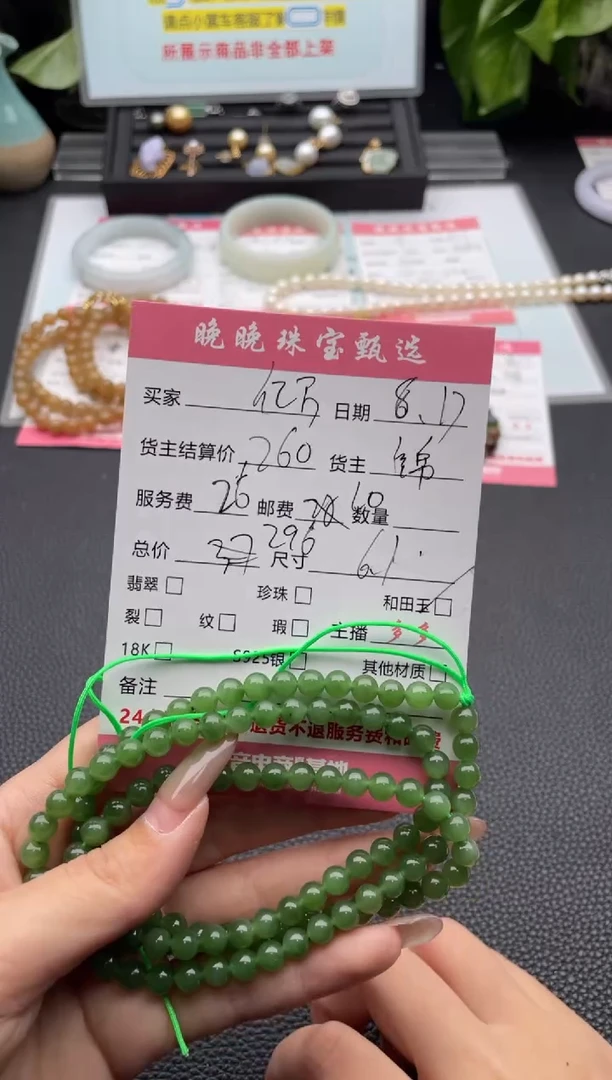 所展示商品非全部上架
晚晚珠宝甄选
买家 亿万 日期 8.17
货主结算价 260 货主 锦
服务费 26 邮费 10 数量
总价 296 尺寸 6.1
翡翠 珍珠 和田玉
裂 纹 瑕 主播 多多
18K S925银 其他材质
备注
24 退货不退服务费和邮费